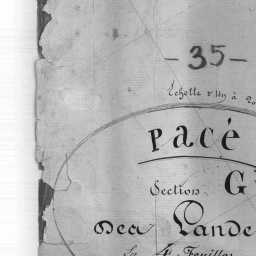 - 35 -
Echelle d'un à 20
PACÉ
Section G
Des Lande
En 4 Feuilles